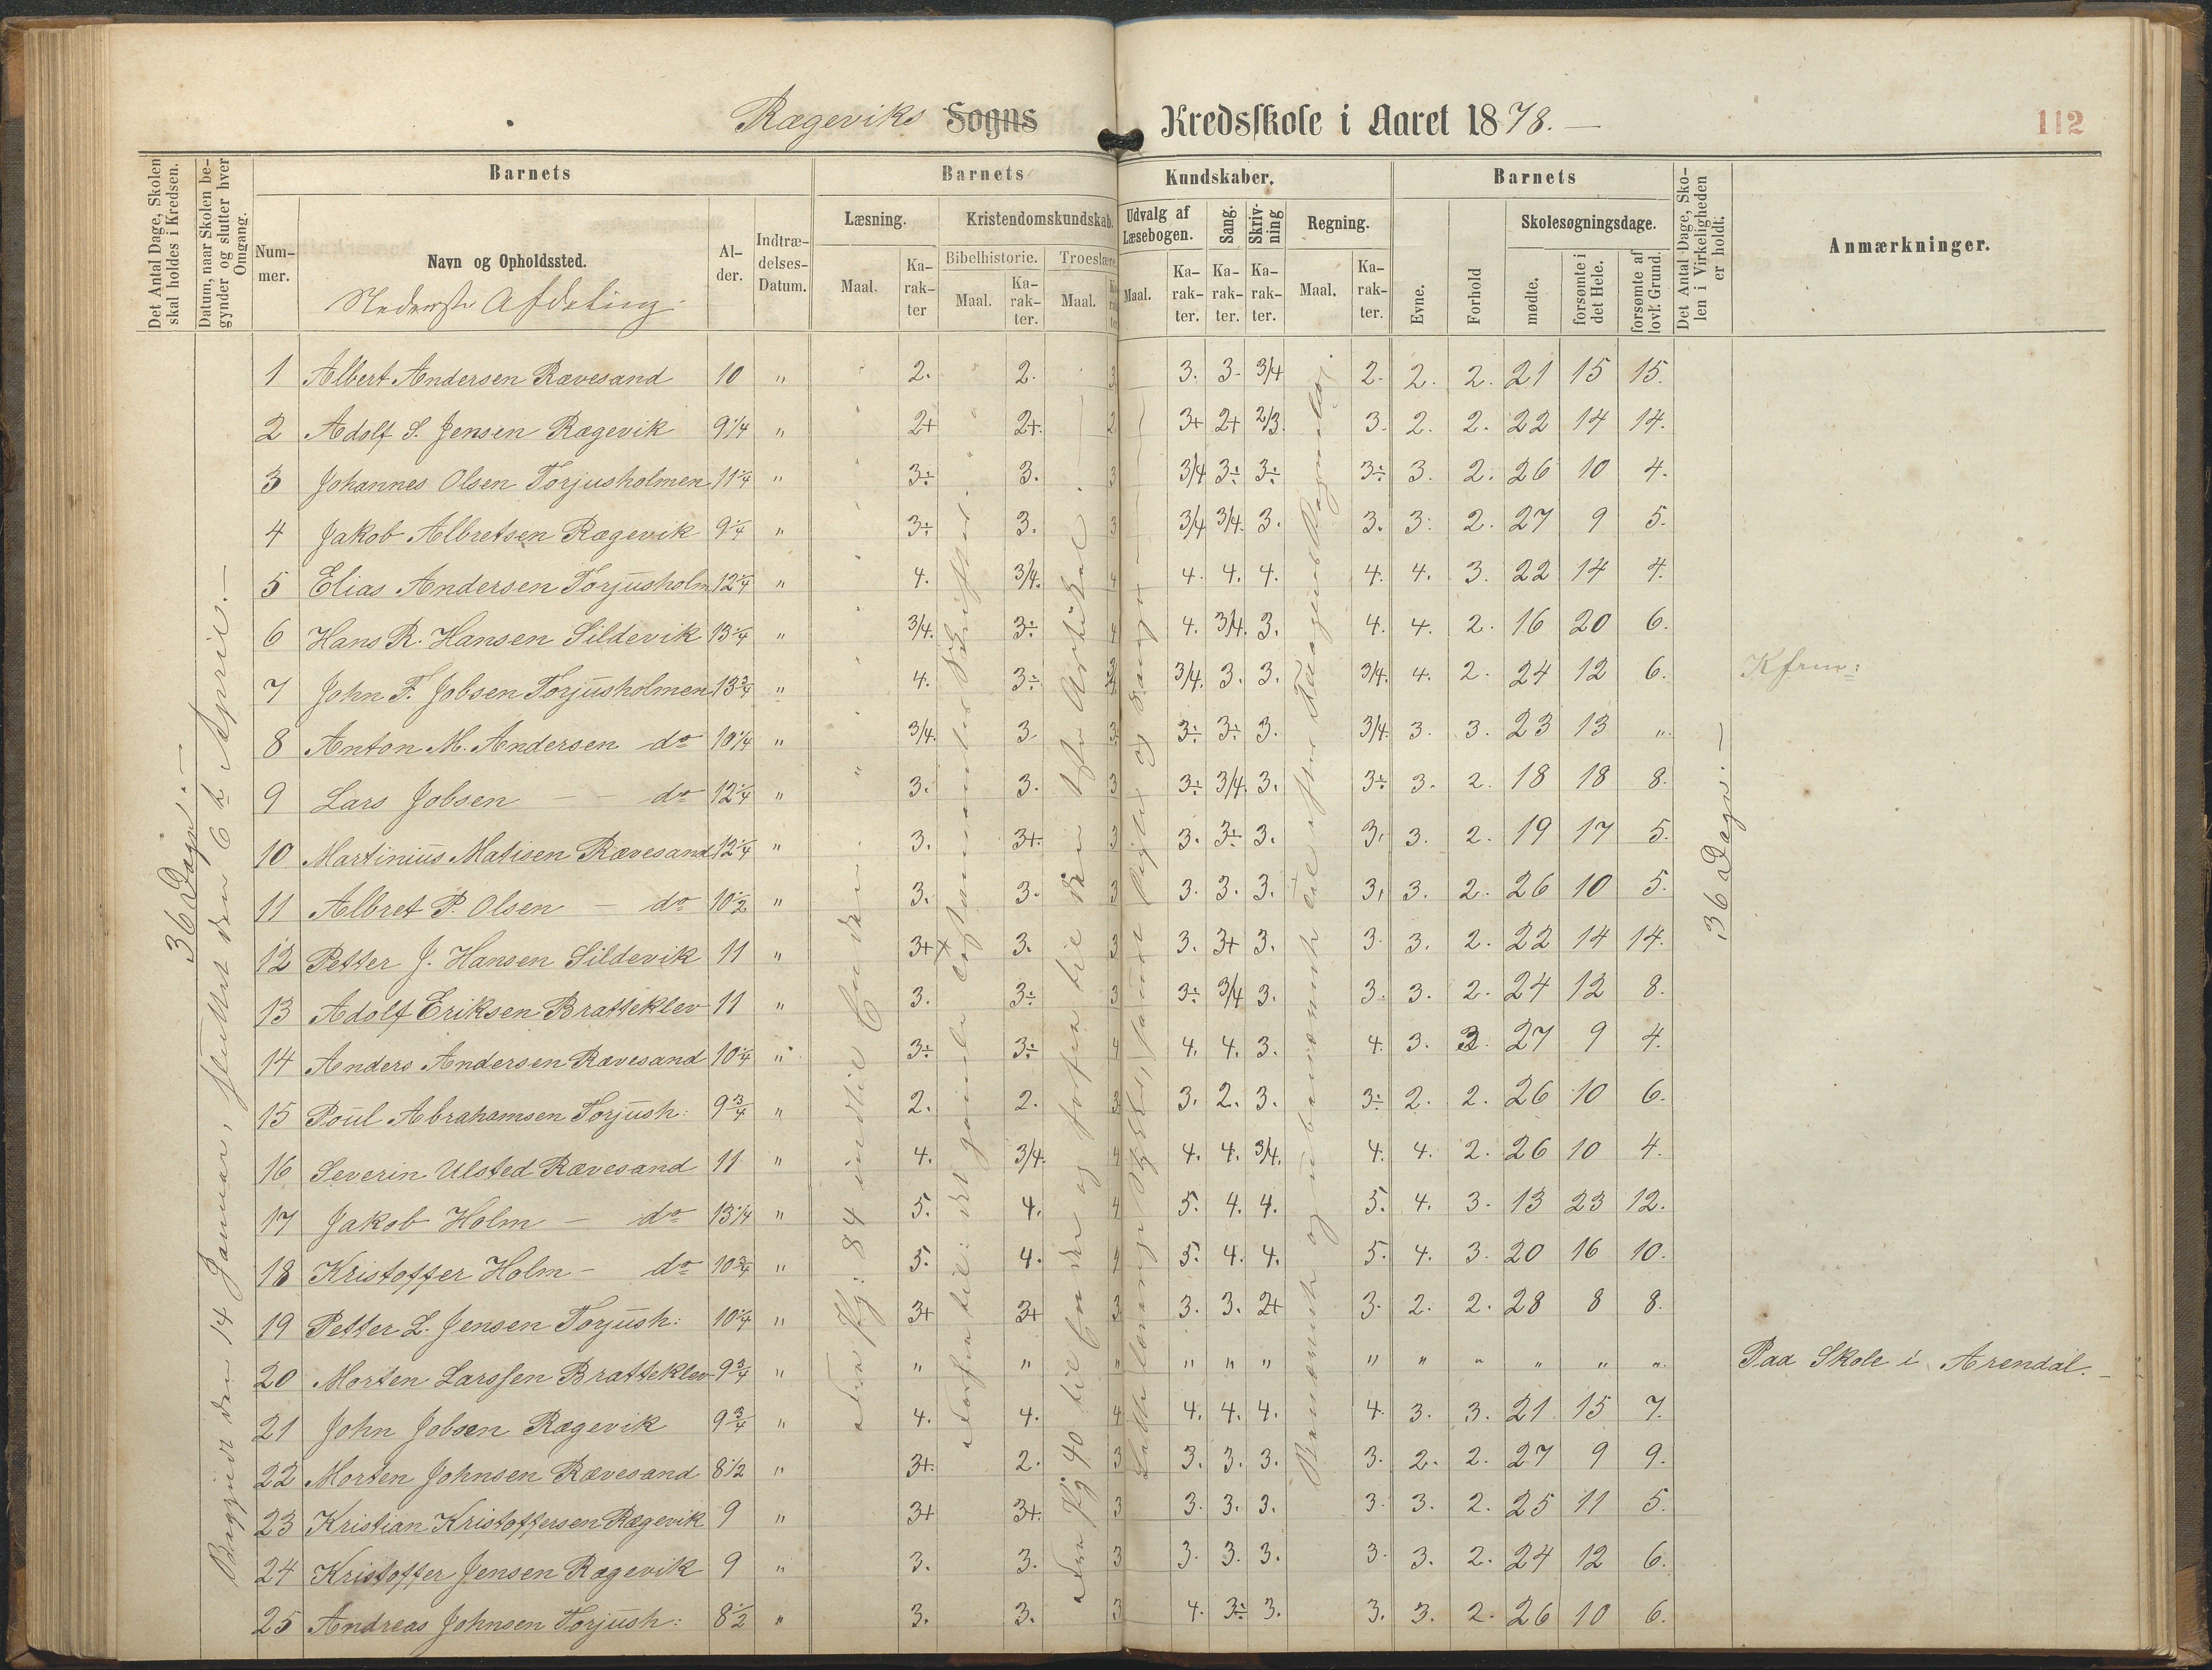 Rægeviks Sogns Kredsskole i Aaret 1878.—
112
Det Antal Dage, Skolen skal holdes i Kredsen.
Datum, naar Skolen begynder og slutter hver Omgang.
Barnets
Nummer.
Navn og Opholdssted.
Nederste Afdeling
Alder.
Indtrædelses-Datum.
Barnets Kundskaber.
Læsning.
Maal.
Karakter
Kristendomskundskab.
Bibelhistorie.
Maal.
Karakter.
Troeslære
Maal.
Udvalg af Læsebogen.
Maal.
Karakter.
Sang.
Karakter.
Skrivning
Karakter.
Regning.
Maal.
Karakter.
Barnets
Evne.
Forhold
Skolesøgningsdage.
mødte.
forsømte i det Hele.
forsømte af lovl. Grund.
Det Antal Dage, Skolen i Virkeligheden er holdt.
Anmærkninger.
36 Dage.—
Begyndt den 14 Januar, sluttet den 6te April.—
36 Dage.—
1 Albert Andersen Rævesand 10 " 2. 2. 3 3. 3. 3/4 2. 2. 2. 21 15 15.
2 Adolf S. Jensen Rægevik 9 1/4 " 2+ 2+. 2 3+ 2+ 2/3. 3. 2. 2. 22 14 14.
3 Johannes Olsen Torjusholmen 11 1/4 " 3÷ 3. 3 3/4 3÷ 3÷ 3÷ 3. 2. 26 10 4.
4 Jakob Albretsen Rægevik 9 1/4 " 3÷ 3. 3 3/4 3/4. 3. 3. 3. 2. 27 9 5.
5 Elias Andersen Torjusholm 12 1/4 " 4. 3/4. 4 4. 4. 4. 4. 4. 3. 22 14 4.
6 Hans R. Hansen Sildevik 13 1/4 " 3/4. 3÷ 4 4. 3/4. 3. 4. 4. 2. 16 20 6.
7 John F. Jobsen Torjusholmen 13 3/4 " 4. 3÷ 3/4. 3. 3. 3/4. 4. 2. 24 12 6.
8 Anton M. Andersen do 10 1/4 " 3/4. 3. 3 3÷ 3÷ 3. 3/4. 3. 3. 23 13 "
9 Lars Jobsen — — do 12 1/4 " 3. 3. 3 3÷ 3/4. 3. 3÷ 3. 2. 18 18 8.
10 Martinius Matisen Rævesand 12 1/4 " 3. 3+. 3 3. 3÷ 3. 3. 3. 2. 19 17 5.
11 Albret P. Olsen — do 10 1/2 " 3. 3. 3 3. 3. 3. 3. 3. 2. 26 10 5.
12 Petter J. Hansen Sildevik 11 " 3+ 3. 3 3. 3+ 3. 3. 3. 2. 22 14 14.
13 Adolf Eriksen Bratteklev 11 " 3. 3÷ 3 3÷ 3/4 3. 3. 3. 2. 24 12 8.
14 Anders Andersen Rævesand 10 1/4 " 3÷ 3÷ 4 4. 4. 3. 4. 3. 27 9 4.
15 Poul Abrahamsen Torjush: 9 3/4 " 2. 2. 3 3. 2. 3. 3÷ 2. 2. 26 10 6.
16 Severin Ulsted Rævesand 11 " 4. 3/4. 4 4. 4. 3/4. 4. 4. 2. 26 10 4.
17 Jakob Holm — do 13 1/4 " 5. 4. 4 5. 4. 4. 5. 4. 3. 13 23 12.
18 Kristoffer Holm — do 10 3/4 " 5. 4. 4 5. 4. 4. 5. 4. 3. 20 16 10.
19 Petter L. Jensen Torjush: 10 1/4 " 3+ 3+ 3 3. 3. 2+ 3. 2. 2. 28 8 8.
20 Morten Larssen Bratteklev 9 3/4 " " " " " " " " " " " " " Paa Skole i Arendal.—
21 John Jobsen Rægevik 9 3/4 " 4. 4. 4 4. 4. 4. 4. 3. 3. 21 15 7.
22 Morten Johnsen Rævesand 8 1/2 " 3+. 2. 3 3. 3. 3. 3. 2. 2. 27 9 9.
23 Kristian Kristoffersen Rægevik 9 " 3+ 3+. 3 3. 3. 3. 3. 3. 2. 25 11 5.
24 Kristoffer Jensen Rægevik 9 " 3. 3. 3 3. 3. 3. 3. 3. 2. 24 12 6.
25 Andreas Johnsen Torjush: 8 1/2 " 3. 3. 3 4. 3÷ 3. 3. 3. 2. 26 10 6.